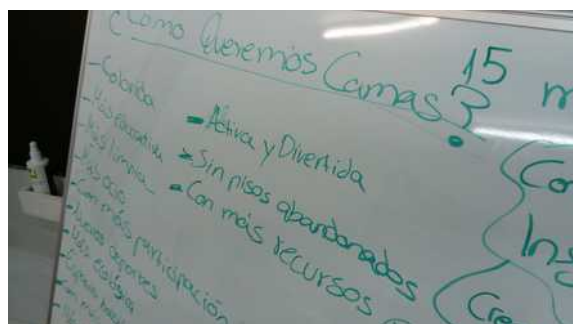 ¿Cómo Queremos Camas?
15 m
- Colorida
- Más educativa
- Más limpia
- Más ocio
- Con más participación
- Más ecológica
- Activa y Divertida
- Sin pisos abandonados
- Con más recursos
Co
Ins
Cre